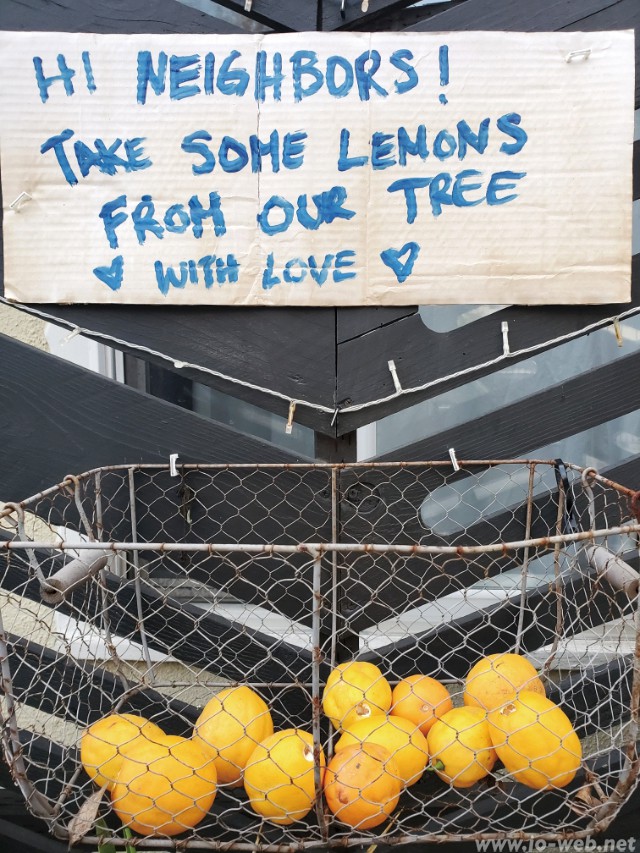 HI NEIGHBORS!
TAKE SOME LEMONS
FROM OUR TREE
♥ WITH LOVE ♥
www.jo-web.net